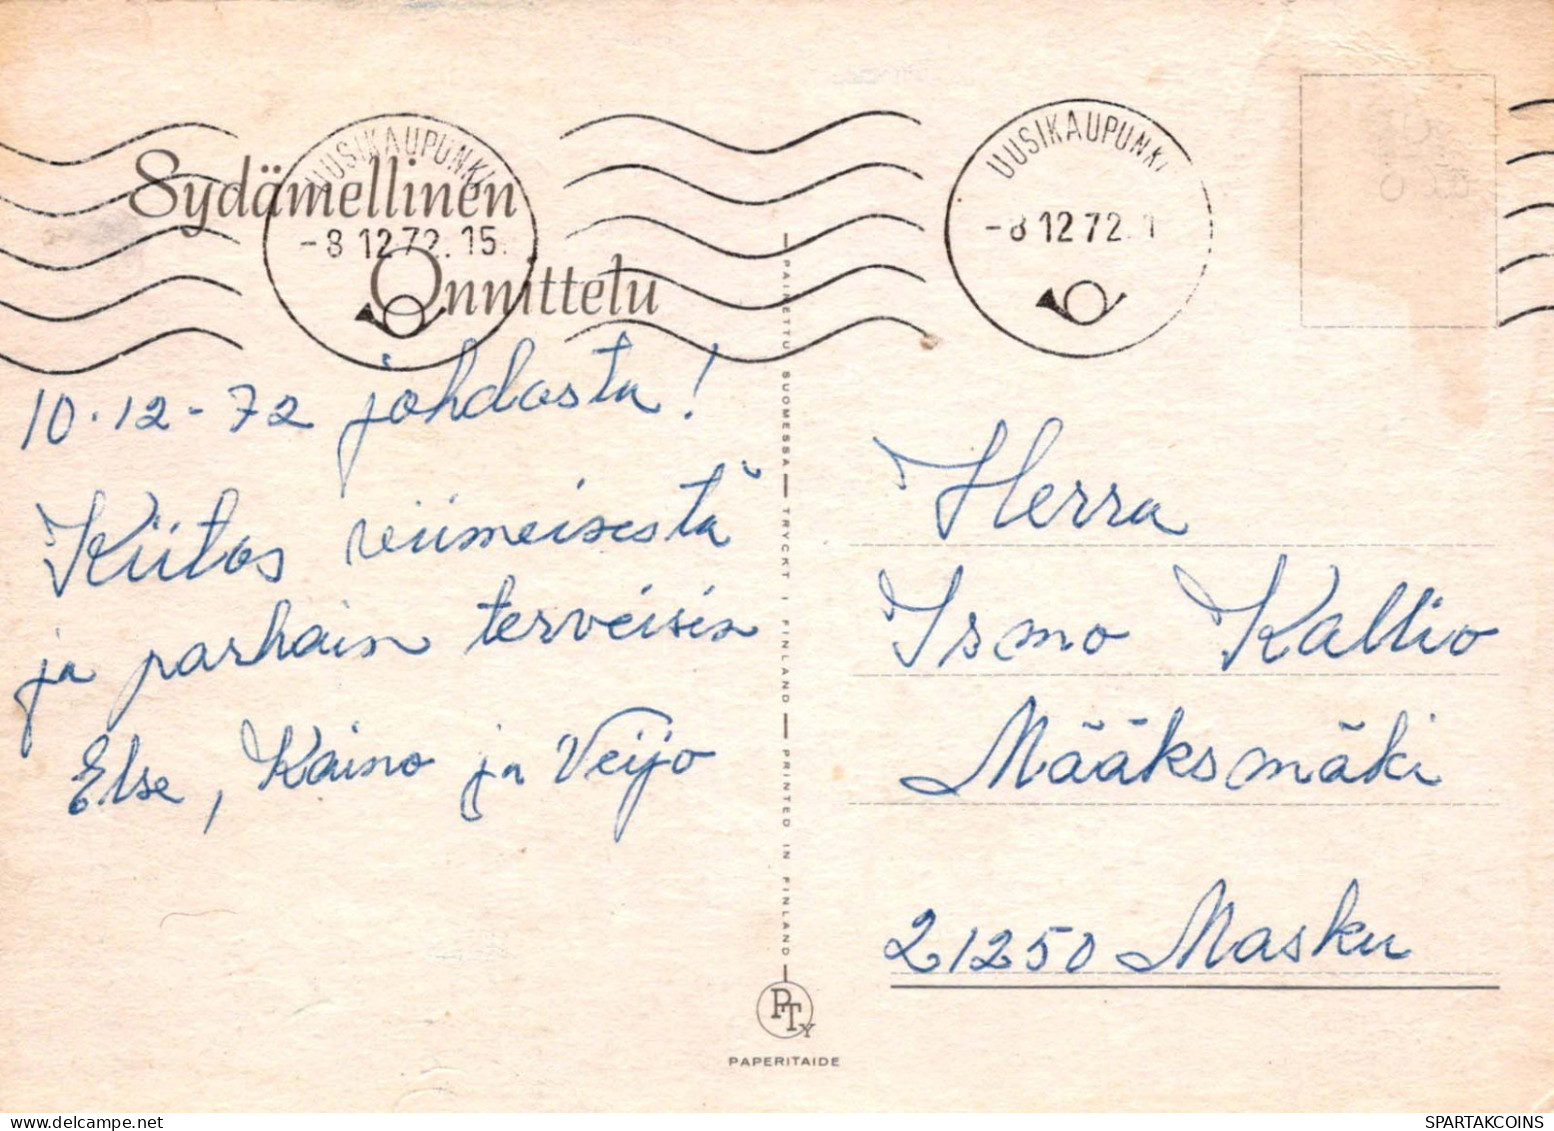 UUSIKAUPUNKI
-8 12 72. 15
Sydämellinen
Onnittelu
10.12-72 johdosta!
Kiitos viimeisestä
ja parhain terveisin
Else, Kaino ja Veijo
PAINETTU SUOMESSA — TRYCKT I FINLAND — PRINTED IN FINLAND
PTY
PAPERITAIDE
UUSIKAUPUNKI
-8 12 72. 1
Herra
Ismo Kallio
Määksmäki
21250 Masku
SPARTAKCOINS